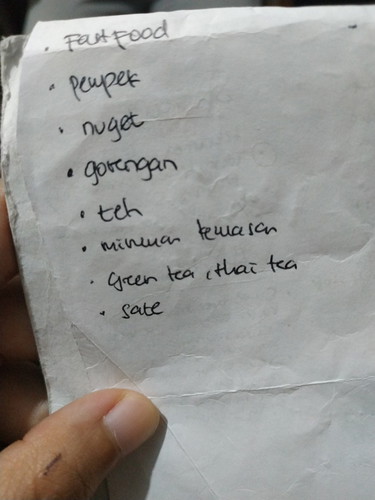 . Fast Food
. pempek
. nuget
. gorengan
. teh
. minuman kemasan
. Green tea , thai tea
. sate